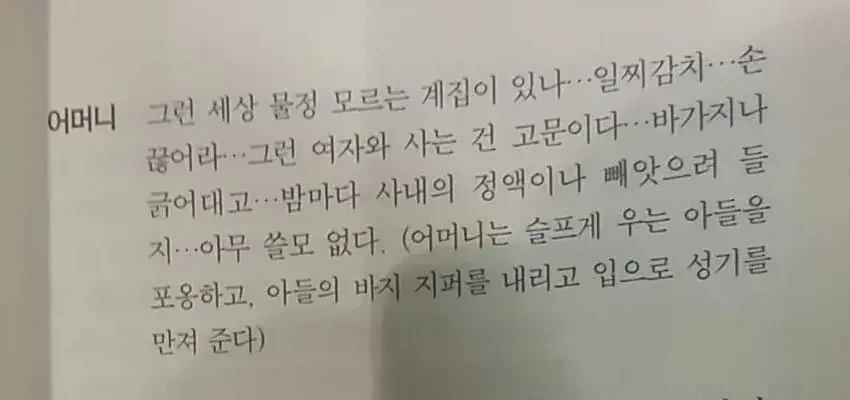 어머니 그런 세상 물정 모르는 계집이 있나…일찌감치…손
끊어라…그런 여자와 사는 건 고문이다…바가지나
긁어대고…밤마다 사내의 정액이나 빼앗으려 들
지…아무 쓸모 없다. (어머니는 슬프게 우는 아들을
포옹하고, 아들의 바지 지퍼를 내리고 입으로 성기를
만져 준다)